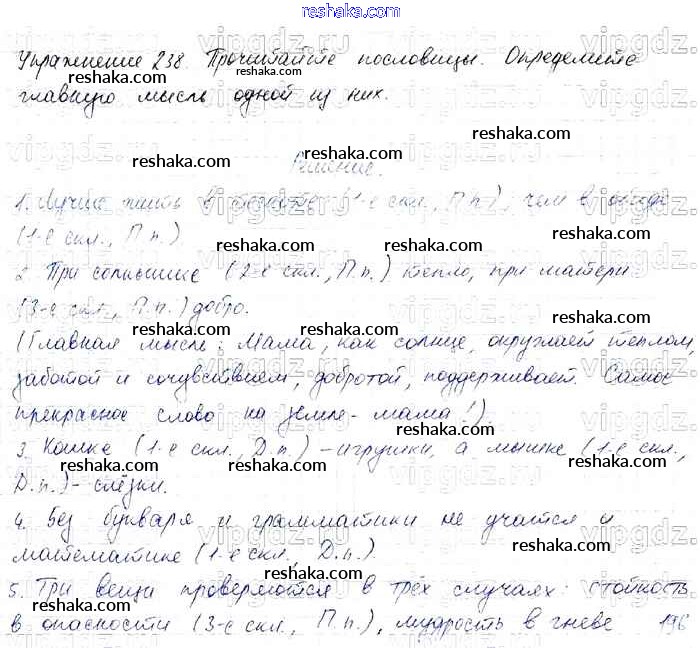 reshaka.com
Упражнение 238. Прочитайте пословицы. Определите
главную мысль одной из них.
Решение.
1. Лучше жить в тесноте (1-е скл., П.п.), чем в обиде
(1-е скл., П.п.).
2. При солнышке (2-е скл., П.п.) тепло, при матери
(3-е скл., П.п.) добро.
(Главная мысль: Мама, как солнце, окружает теплом,
заботой и сочувствием, добротой, поддерживает. Самое
прекрасное слово на земле - мама!)
3. Кошке (1-е скл., Д.п.) - игрушки, а мышке (1-е скл.,
Д.п.) - слёзки.
4. Без букваря и грамматики не учатся и
математике (1-е скл., Д.п.)
5. Три вещи проверяются в трёх случаях: стойкость
в опасности (3-е скл., П.п.), мудрость в гневе 196